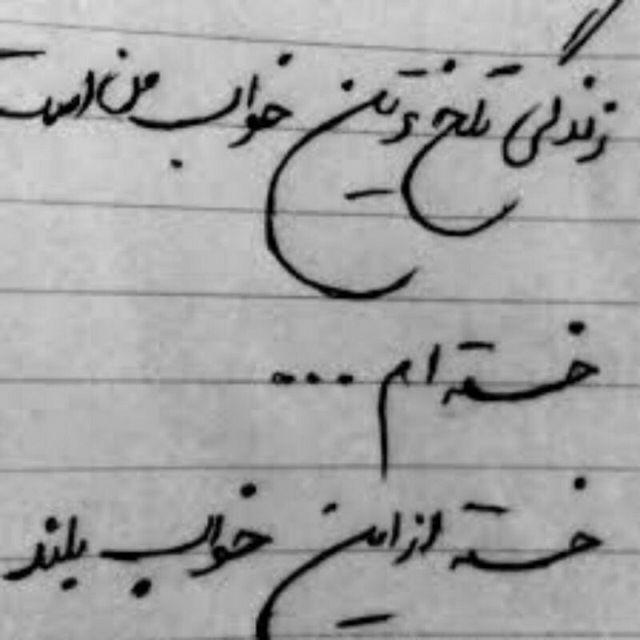 زندگی تلخ ترین خواب من است
خسته ام ...
خسته از این خواب بلند